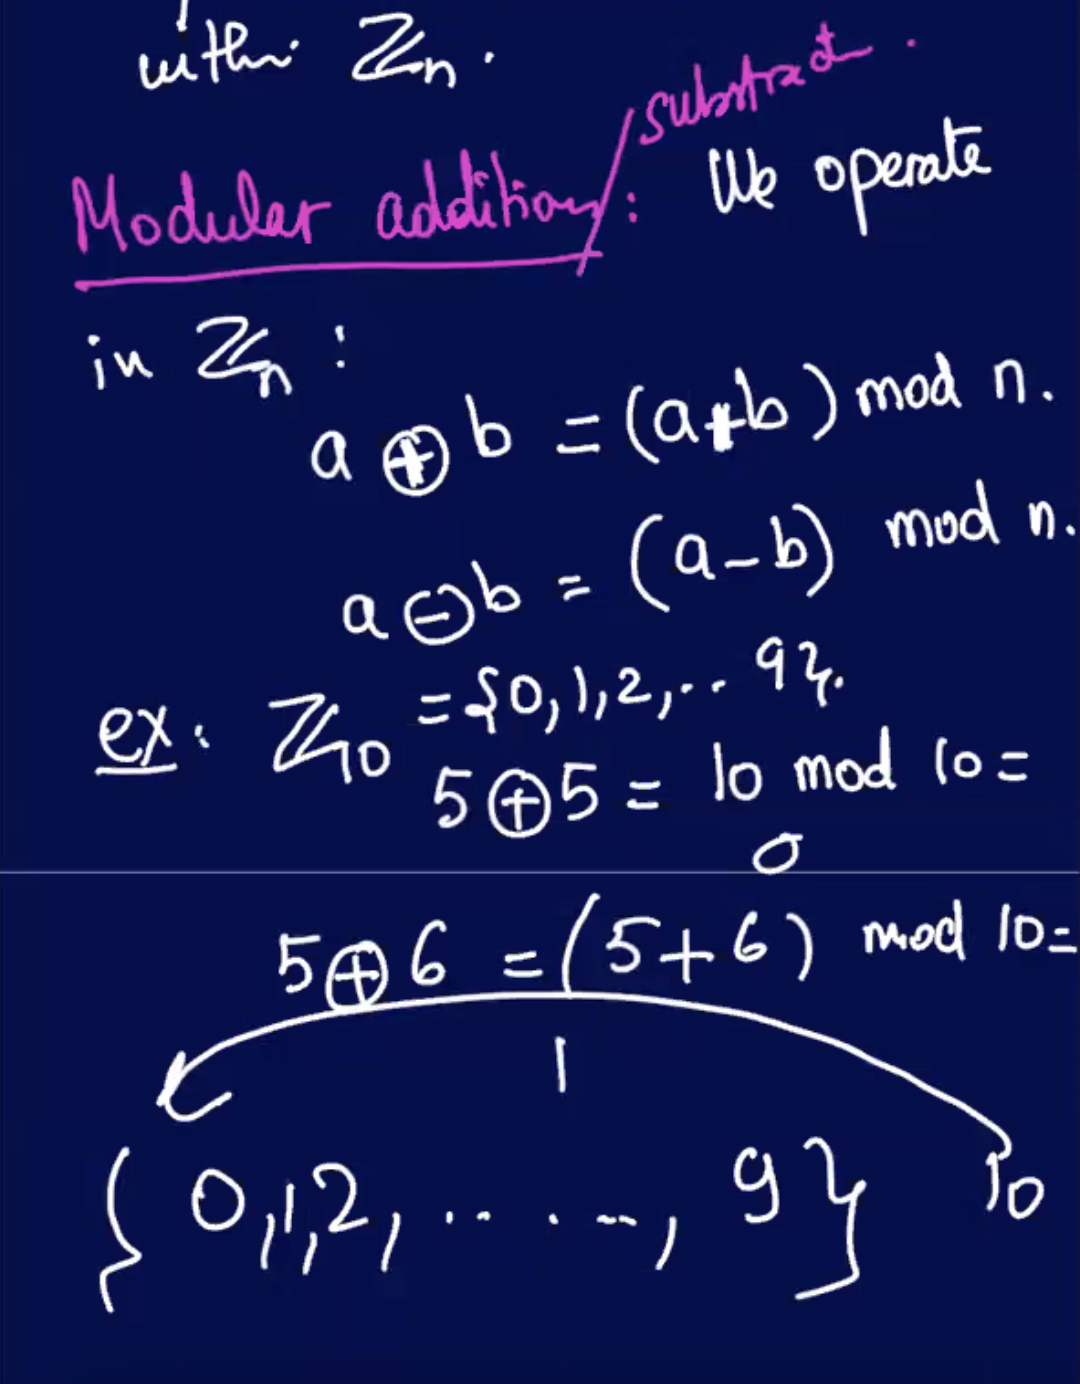 within ℤn.
Modular addition/substract.: We operate
in ℤn :
a ⊕ b = (a+b) mod n.
a ⊖ b = (a-b) mod n.
ex: ℤ10 = {0,1,2,.. 9}.
5 ⊕ 5 = 10 mod 10 =
0
5 ⊕ 6 = (5+6) mod 10 =
1
{ 0,1,2, .. . --, 9 } 10